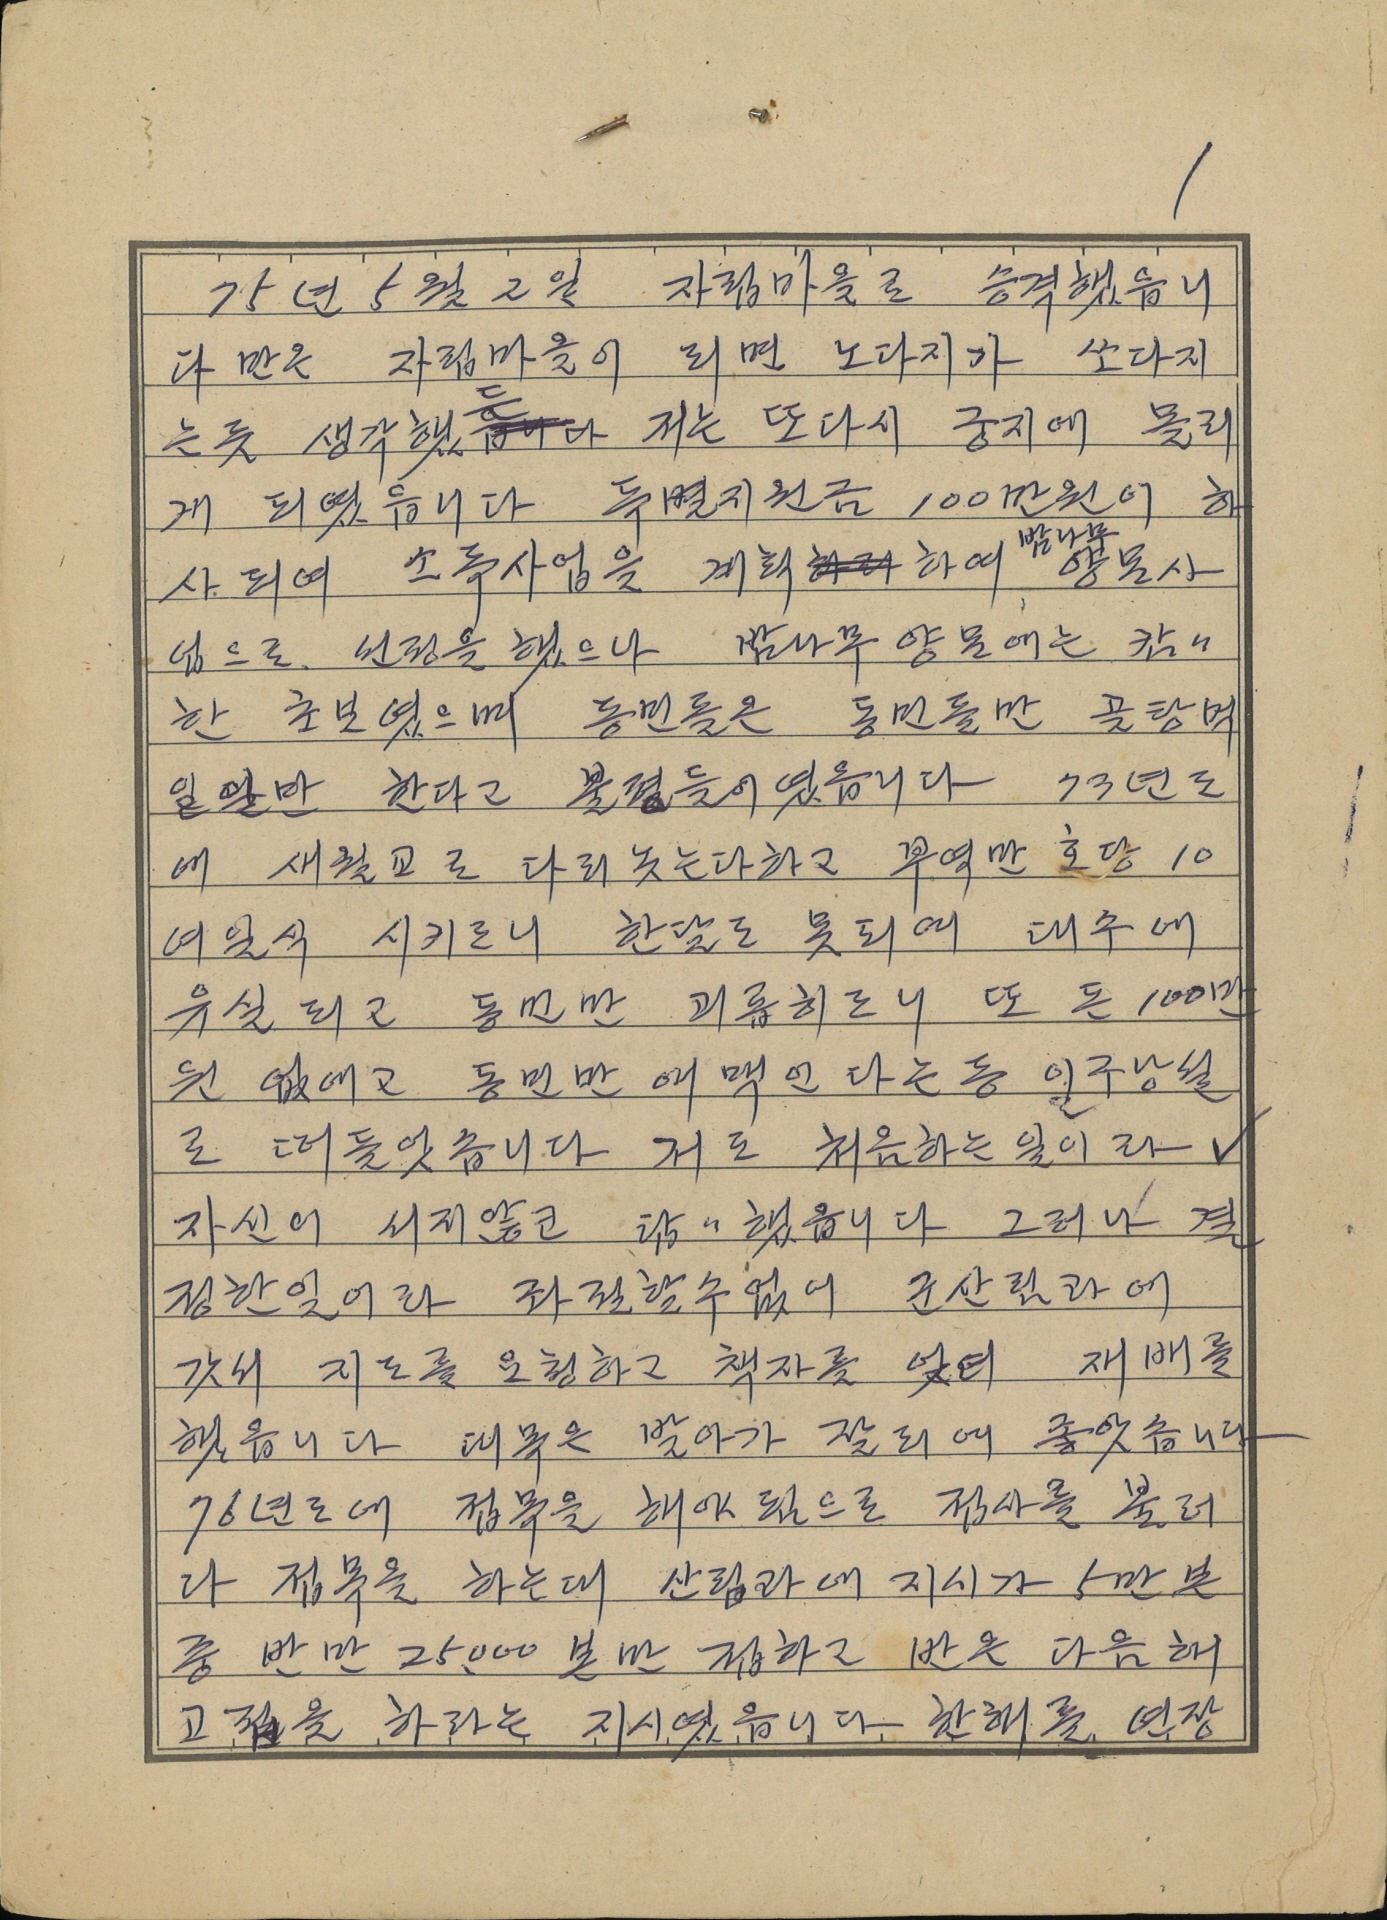 1
75년 5월 2일 자립마을로 승격했읍니
다 만은 자립마을이 되면 노다지가 쏘다지
는듯 생각했든 저는 또다시 궁지에 몰리
게 되였읍니다 특별지원금 100만원이 하
사되여 소득사업을 계획하여 밤나무 양묘사
업으로 선정을 했으나 밤나무 양묘에는 캄〃
한 초보였으며 동민들은 동민들만 골탕먹
일일만 한다고 불평들이였읍니다 73년도
에 새월교로 다리놋는다하고 부역만 호당 10
여일식 시키드니 한달도 못되여 대수에
유실되고 동민만 괴롭히드니 또 돈 100만
원 없에고 동민만 애맥인다는등 일구낭설
로 떠들엇습니다 저도 처음하는 일이라
자신이 서지않고 답〃했읍니다 그러나 결
정한일이라 좌절할수없어 군산림과에
갓서 지도를 요청하고 책자를 엇더 재배를
했읍니다 대목은 발아가 잘되여 좋앗습니다
76년도에 접목을 해야 됨으로 접사를 불러
다 접목을 하는대 산림과에 지시가 5만본
중 반만 25,000본만 접하고 반은 다음해
고접을 하라는 지시였읍니다 한해를 연장